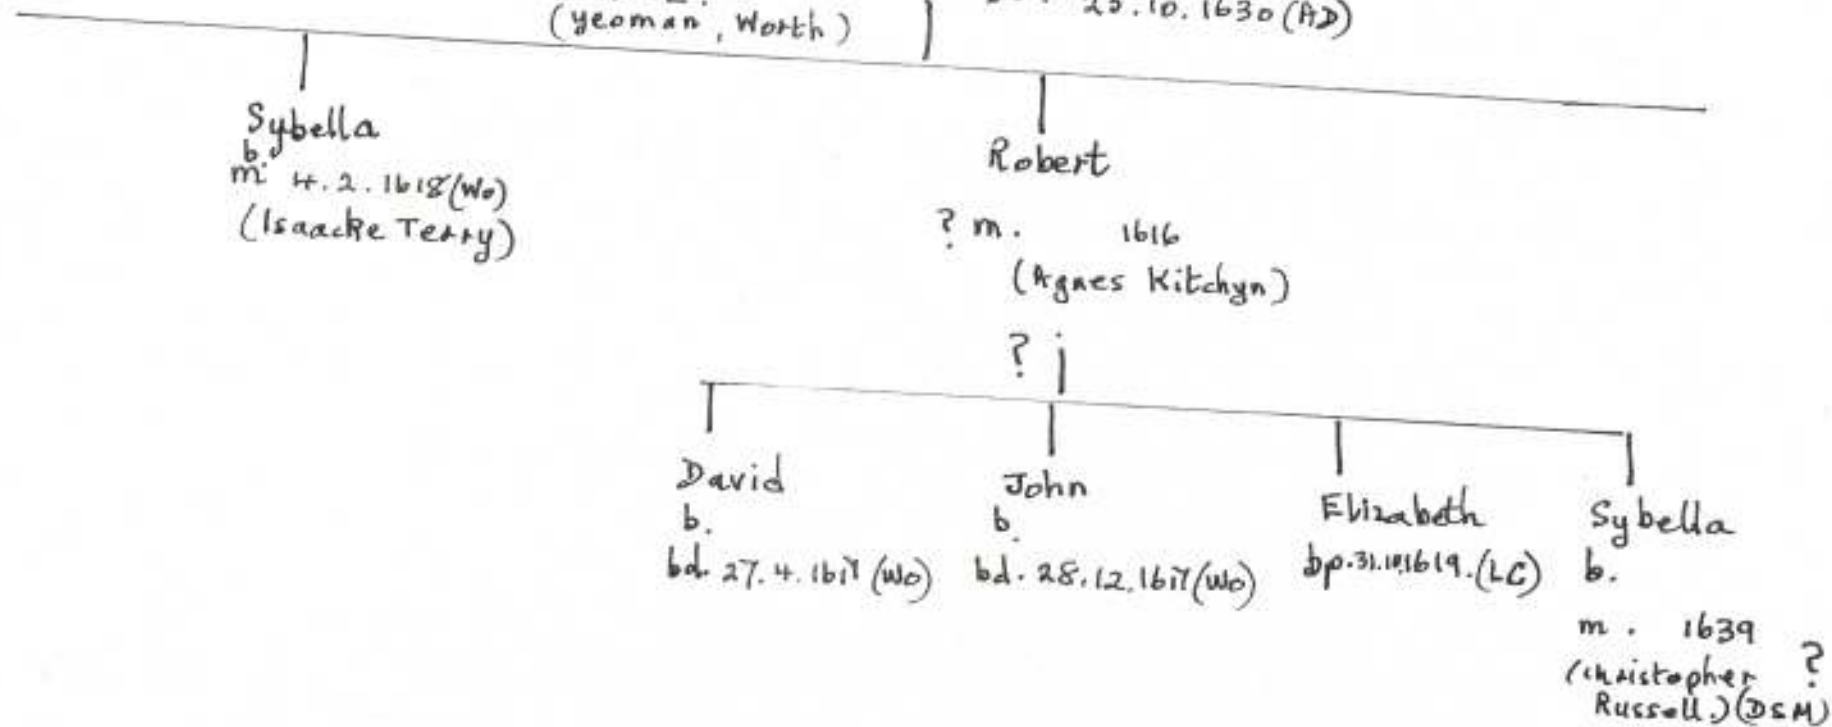 (yeoman, Worth)
25.10.1630 (AD)
Sybella
b.
m. 4.2.1618 (Wo)
(Isaacke Terry)
Robert
? m. 1616
(Agnes Kitchyn)
?
David
b.
bd. 27.4.1617 (Wo)
John
b.
bd. 28.12.1617 (Wo)
Elizabeth
bp. 31.10.1619. (LC)
Sybella
b.
m. 1639
(Christopher ?
Russell.) (DSM)